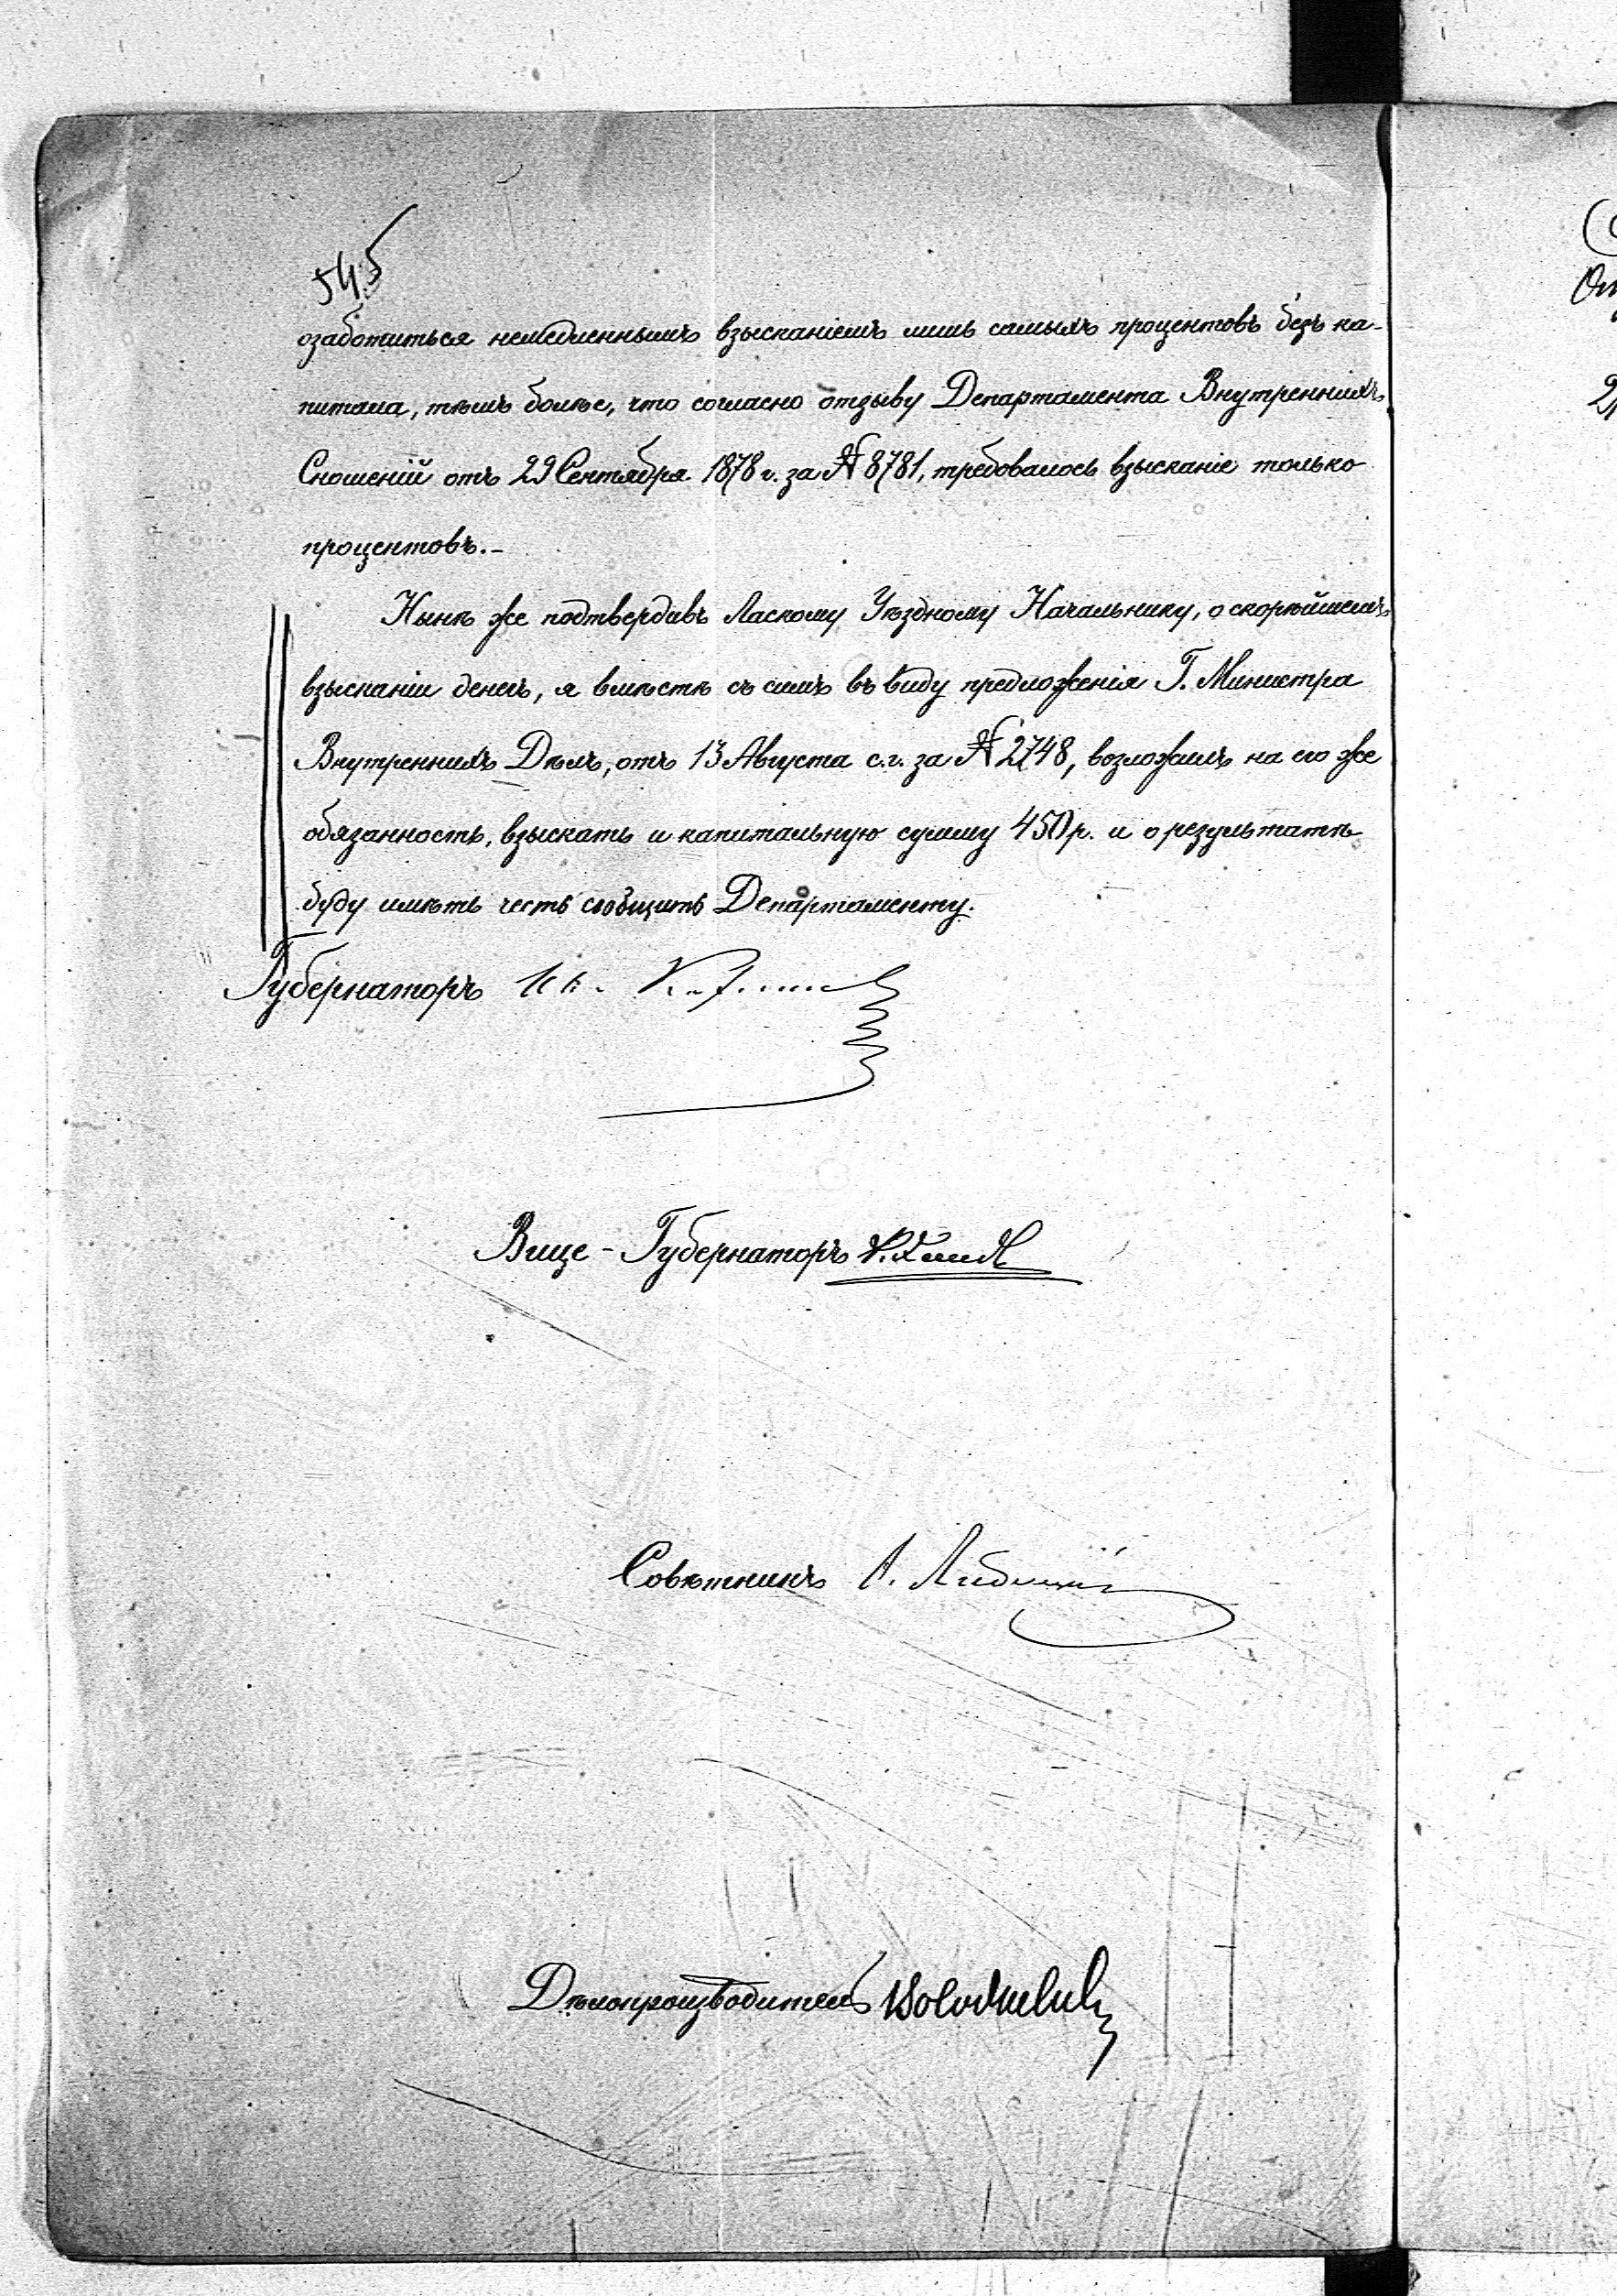 545
озаботиться немедленнымъ взысканіемъ лишь самыхъ процентовъ безъ ка-
питала, тѣмъ болѣе, что согласно отзыву Департамента Внутреннихъ
Сношеній отъ 29 Сентября 1878 г. за № 8781, требовалось взысканіе только
процентовъ.-
Нынѣ же подтвердивъ Ласкому Уѣздному Начальнику, о скорѣйшемъ
взысканіи денегъ, я вмѣстѣ съ симъ въ виду предложенія Г. Министра
Внутреннихъ Дѣлъ, отъ 13 Августа с.г. за № 2748, возложилъ на его же
обязанность, взыскать и капитальную сумму 450 р. и о результатѣ
буду имѣть честь сообщить Департаменту.
Губернаторъ
Вице-Губернаторъ
Совѣтникъ А.
Дѣлопроизводитель